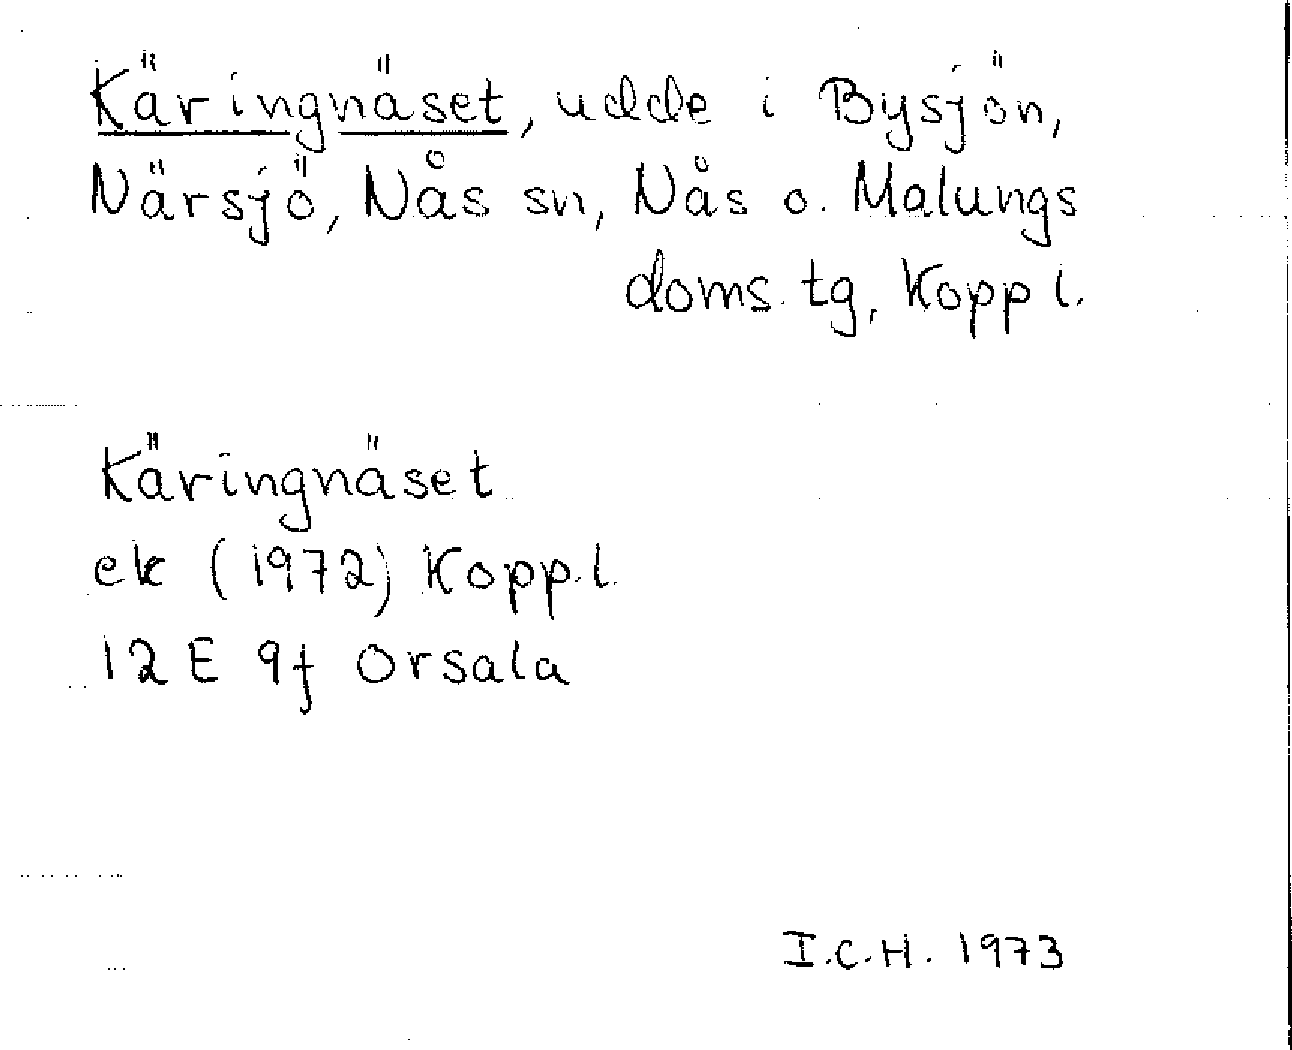 Käringnäset, udde i Bysjön,
Närsjö, Nås sn, Nås o. Malungs
doms. tg, Kopp l.
Käringnäset
ek (1972) Kopp. l.
12 E 9f Orsala
I.C.H. 1973